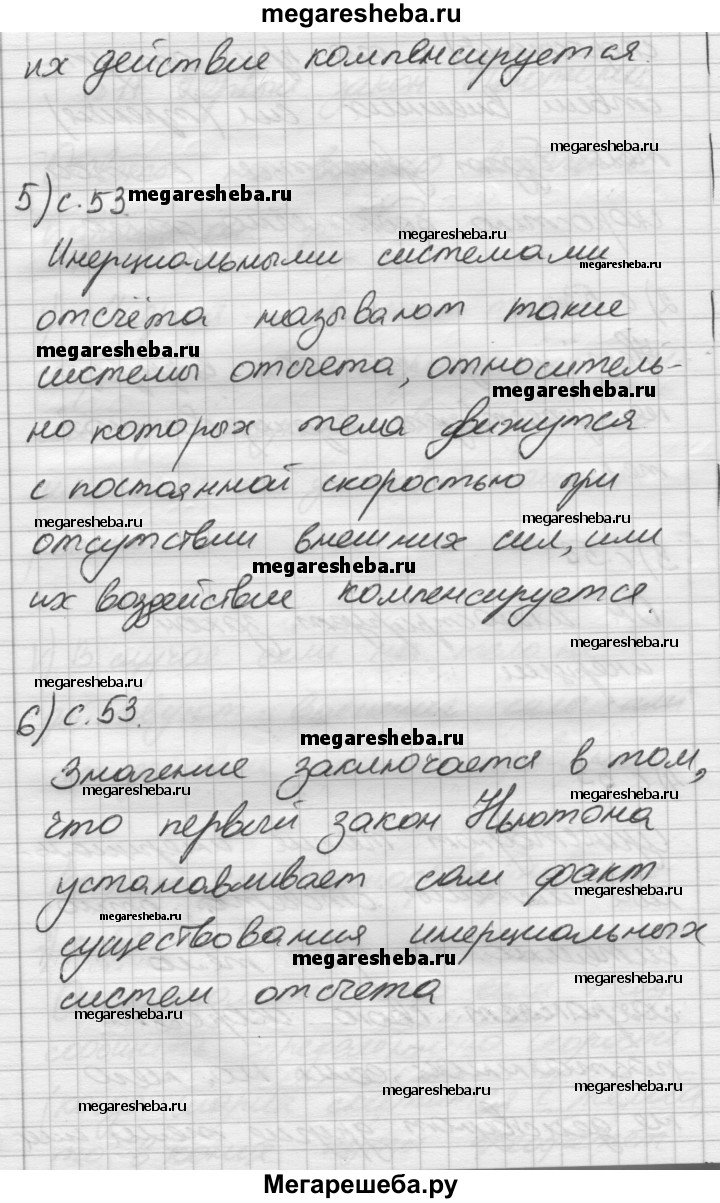 megaresheba.ru
их действие компенсируется.
megaresheba.ru
5) с.53.
megaresheba.ru
megaresheba.ru
Инерциальными системами
megaresheba.ru
отсчёта называют такие
megaresheba.ru
системы отсчета, относитель-
megaresheba.ru
но которых тела движутся
с постоянной скоростью при
megaresheba.ru
megaresheba.ru
отсутствии внешних сил, или
megaresheba.ru
их воздействие компенсируется.
megaresheba.ru
megaresheba.ru
6) с.53.
megaresheba.ru
Значение заключается в том,
megaresheba.ru
megaresheba.ru
что первый закон Ньютона
устанавливает сам факт
megaresheba.ru
megaresheba.ru
существования инерциальных
megaresheba.ru
megaresheba.ru
систем отсчета
megaresheba.ru
megaresheba.ru
megaresheba.ru
megaresheba.ru
Мегарешеба.ру